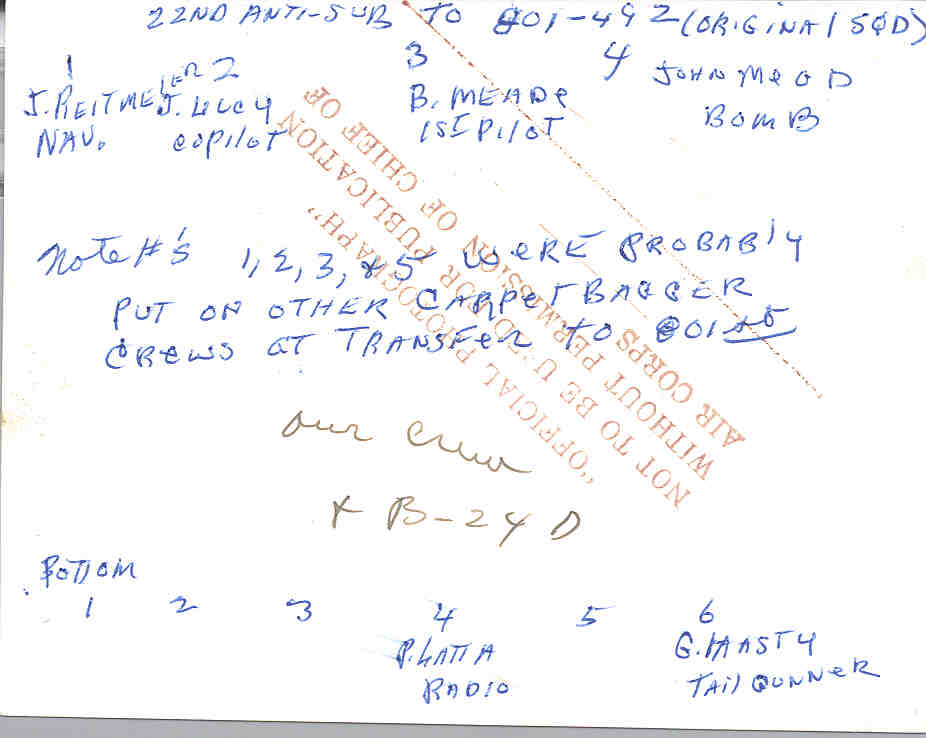 22ND ANTI-SUB TO 801-492 (ORIGINAL SQD)
1 2 3 4 JOHN MEAD
J. REITMEIER J. LUCY B. MEADE BOMB
NAV. COPILOT 1ST PILOT
Note #'s 1, 2, 3, & 5 WERE PROBABLY
PUT ON OTHER CARPETBAGGER
CREWS AT TRANSFER TO 801
our crew
& B-24 D
BOTTOM
1 2 3 4 5 6
P. LATTA G. HASTY
RADIO TAIL GUNNER
"OFFICIAL PHOTOGRAPH"
NOT TO BE USED FOR PUBLICATION
WITHOUT PERMISSION OF CHIEF OF
AIR CORPS